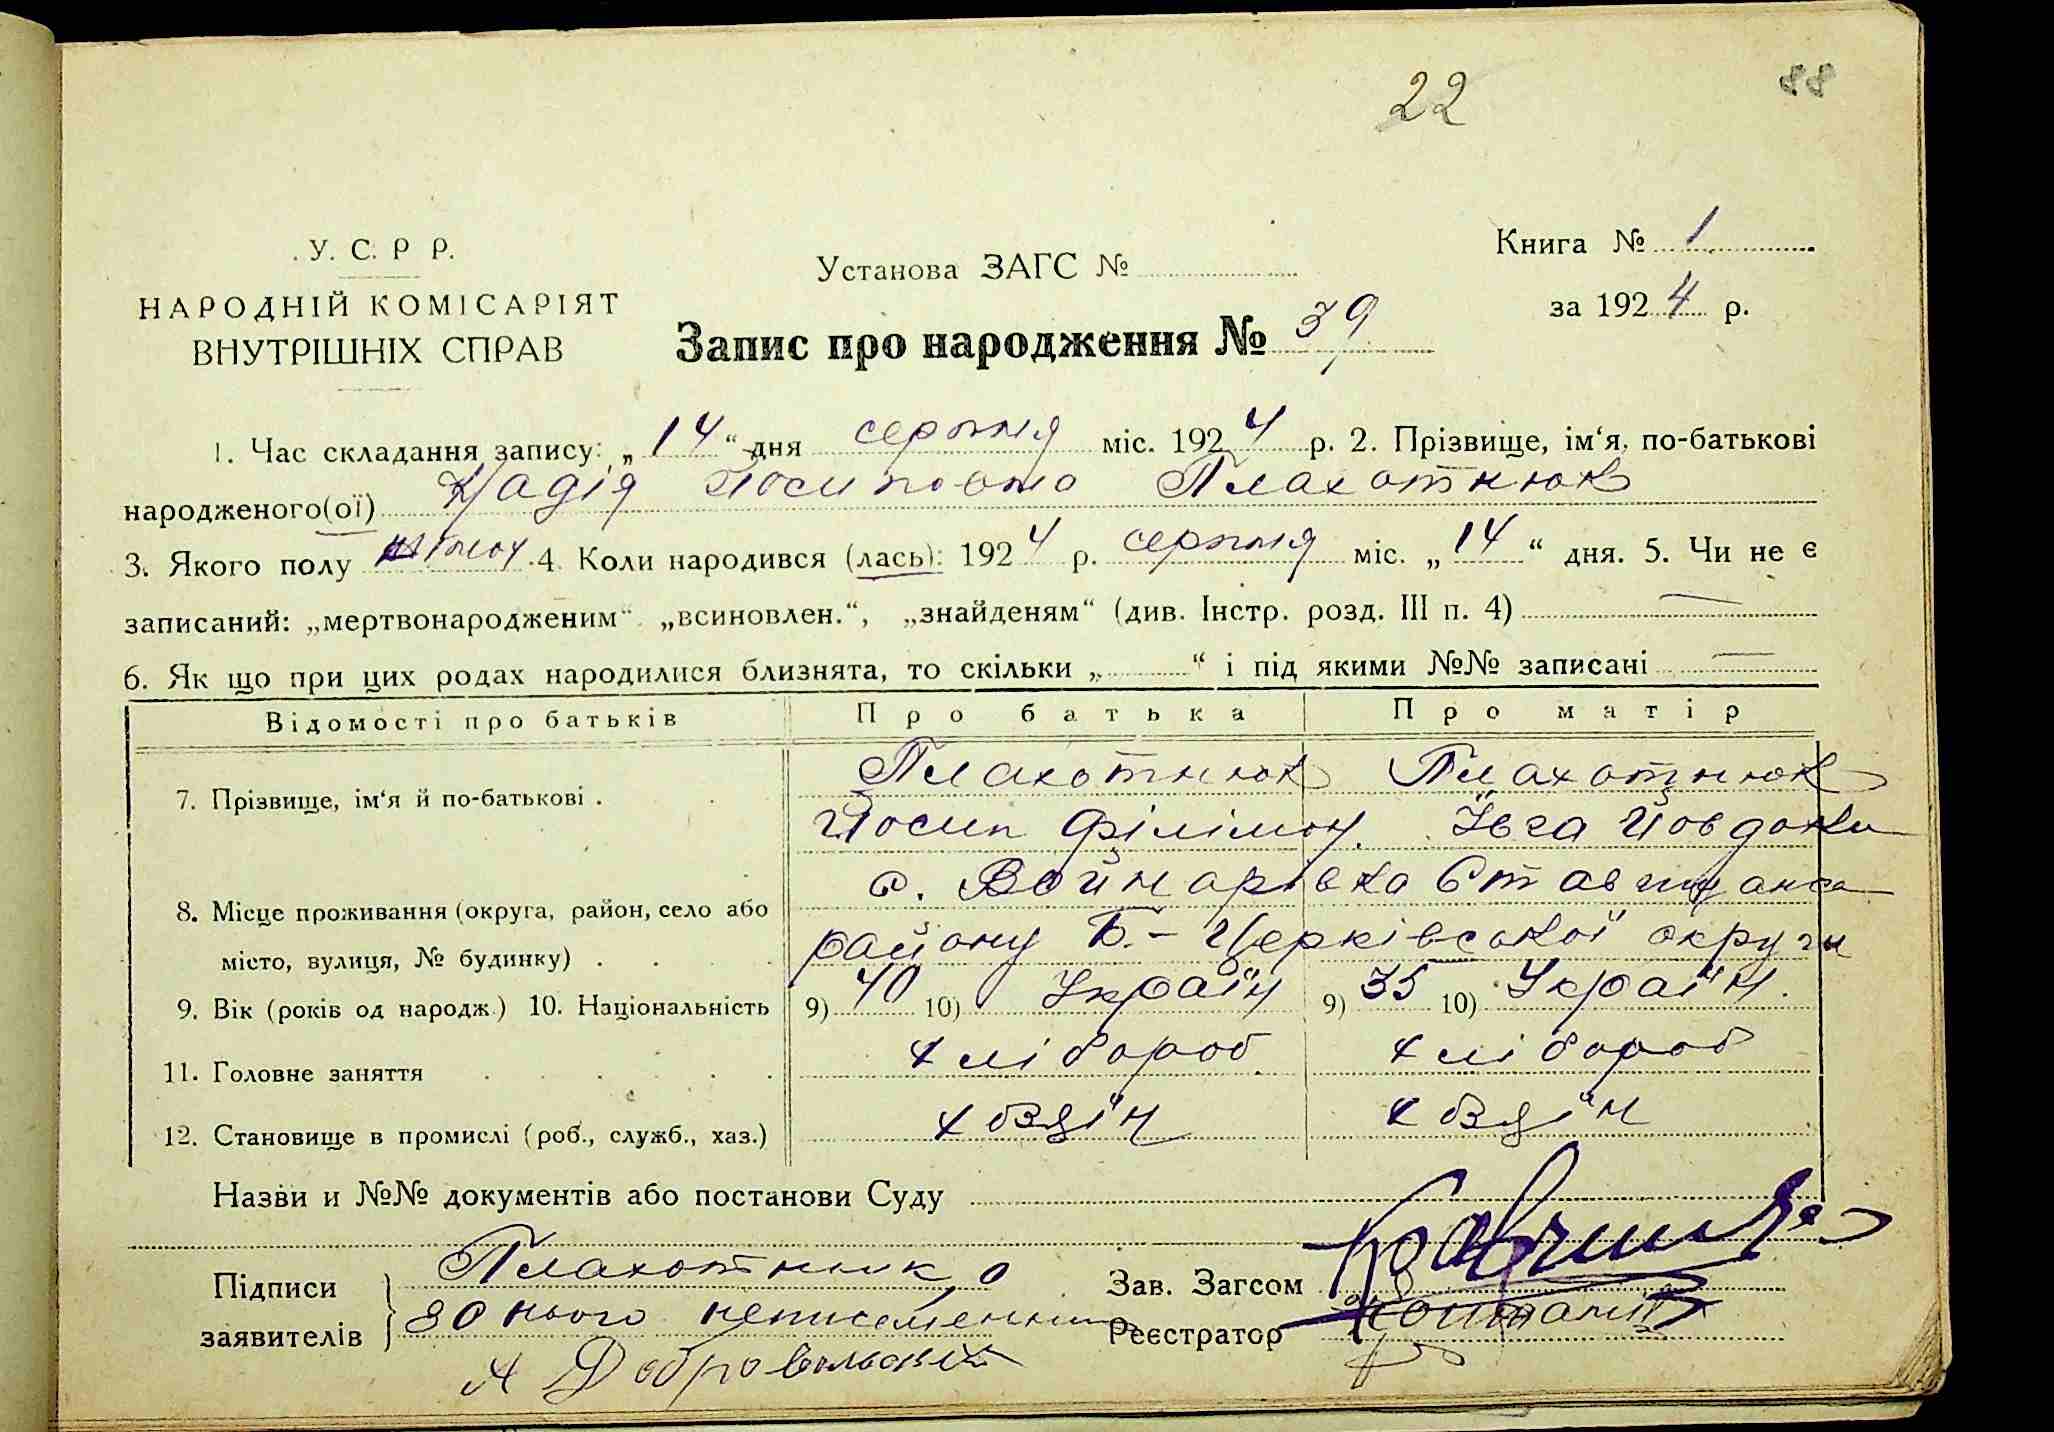 22
88
У. С. Р Р.
НАРОДНІЙ КОМІСАРІЯТ
ВНУТРІШНІХ СПРАВ
Установа ЗАГС №
Запис про народження № 39
Книга № 1
за 1924 р.
1. Час складання запису: „14“ дня серпня міс. 1924 р. 2. Прізвище, ім‘я, по-батькові
народженого(ої) Надія Йосиповна Плахотнюк
3. Якого полу жіноч 4. Коли народився (лась): 1924 р. серпня міс. „14“ дня. 5. Чи не є
записаний: „мертвонародженим“ „всиновлен.“, „знайденям“ (див. Інстр. розд. III п. 4) —
6. Як що при цих родах народилися близнята, то скільки „ “ і під якими №№ записані —
Відомості про батьків Про батька Про матір
7. Прізвище, ім‘я й по-батькові . Плахотнюк Плахотнюк
Йосип Філімон. Ївга Йовдоки
8. Місце проживання (округа, район, село або с. Войнарівка Ставищанса
місто, вулиця, № будинку) . району Б.-Церківської округи
9. Вік (років од народж.) 10. Національність 9) 40 10) Україн 9) 35 10) Україн.
11. Головне заняття хлібороб хлібороб
12. Становище в промислі (роб., служб., хаз.) хозяїн хозяїн
Назви и №№ документів або постанови Суду
Підписи Плахотник, а
заявителів за нього неписьменного
А Добровольский
Зав. Загсом
Реєстратор